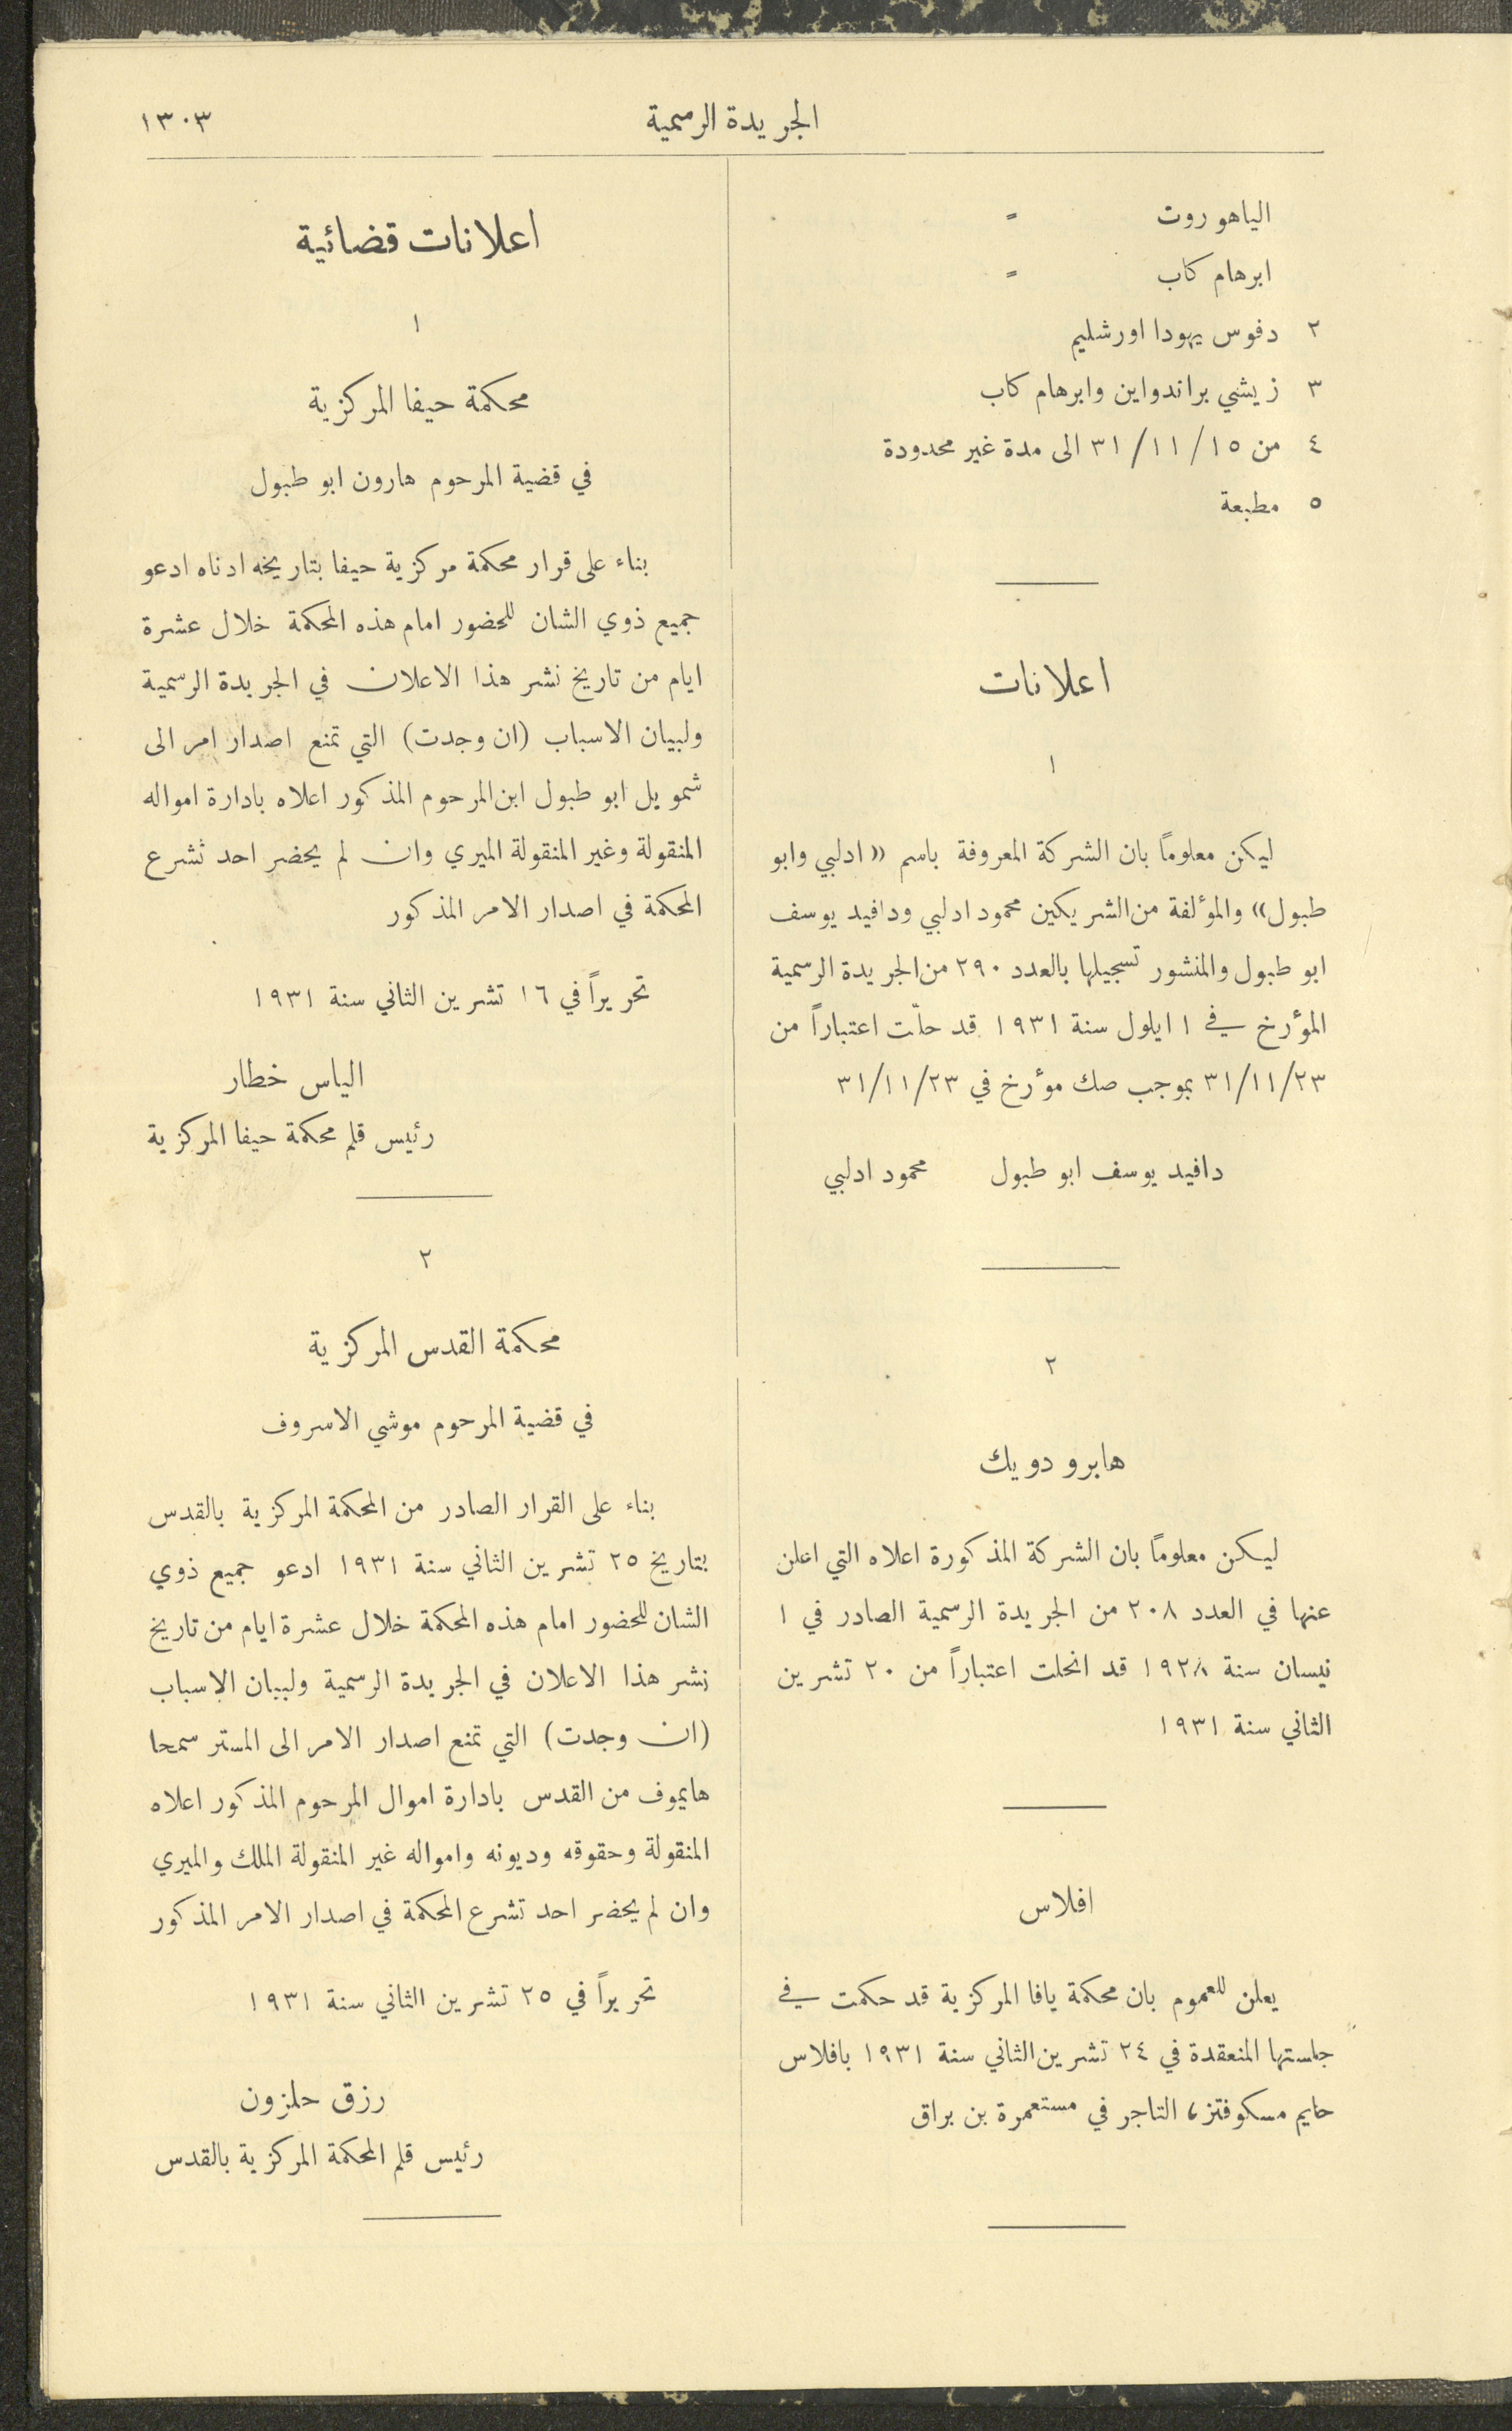 الجريدة الرسمية
١٣٠٣
الياهو روت =
ابرهام كاب =
٢ دفوس يهودا اورشليم
٣ زيشي براندواين وابرهام كاب
٤ من ١٥/ ١١/ ٣١ الى مدة غير محدودة
٥ مطبعة
اعلانات
١
ليكن معلوماً بان الشركة المعروفة باسم «ادلبي وابو
طبول» والمؤلفة من الشريكين محمود ادلبي ودافيد يوسف
ابو طبول والمنشور تسجيلها بالعدد ٢٩٠ من الجريدة الرسمية
المؤرخ في ١ ايلول سنة ١٩٣١ قد حلّت اعتباراً من
٣١/١١/٢٣ بموجب صك مؤرخ في ٣١/١١/٢٣
دافيد يوسف ابو طبول محمود ادلبي
٢
هابرو دويك
ليكن معلوماً بان الشركة المذكورة اعلاه التي اعلن
عنها في العدد ٢٠٨ من الجريدة الرسمية الصادر في ١
نيسان سنة ١٩٢٨ قد انحلت اعتباراً من ٢٠ تشرين
الثاني سنة ١٩٣١
افلاس
يعلن للعموم بان محكمة يافا المركزية قد حكمت في
جلستها المنعقدة في ٢٤ تشرين الثاني سنة ١٩٣١ بافلاس
حايم مسكوفتز، التاجر في مستعمرة بن براق
اعلانات قضائية
١
محكمة حيفا المركزية
في قضية المرحوم هارون ابو طبول
بناء على قرار محكمة مركزية حيفا بتاريخه ادناه ادعو
جميع ذوي الشان للحضور امام هذه المحكمة خلال عشرة
ايام من تاريخ نشر هذا الاعلان في الجريدة الرسمية
ولبيان الاسباب (ان وجدت) التي تمنع اصدار امر الى
شمويل ابو طبول ابن المرحوم المذكور اعلاه بادارة امواله
المنقولة وغير المنقولة الميري وان لم يحضر احد تشرع
المحكمة في اصدار الامر المذكور
تحريراً في ١٦ تشرين الثاني سنة ١٩٣١
الياس خطار
رئيس قلم محكمة حيفا المركزية
٢
محكمة القدس المركزية
في قضية المرحوم موشي الاسروف
بناء على القرار الصادر من المحكمة المركزية بالقدس
بتاريخ ٢٥ تشرين الثاني سنة ١٩٣١ ادعو جميع ذوي
الشان للحضور امام هذه المحكمة خلال عشرة ايام من تاريخ
نشر هذا الاعلان في الجريدة الرسمية ولبيان الاسباب
(ان وجدت) التي تمنع اصدار الامر الى المستر سمحا
هايموف من القدس بادارة اموال المرحوم المذكور اعلاه
المنقولة وحقوقه وديونه وامواله غير المنقولة الملك والميري
وان لم يحضر احد تشرع المحكمة في اصدار الامر المذكور
تحريراً في ٢٥ تشرين الثاني سنة ١٩٣١
رزق حلزون
رئيس قلم المحكمة المركزية بالقدس